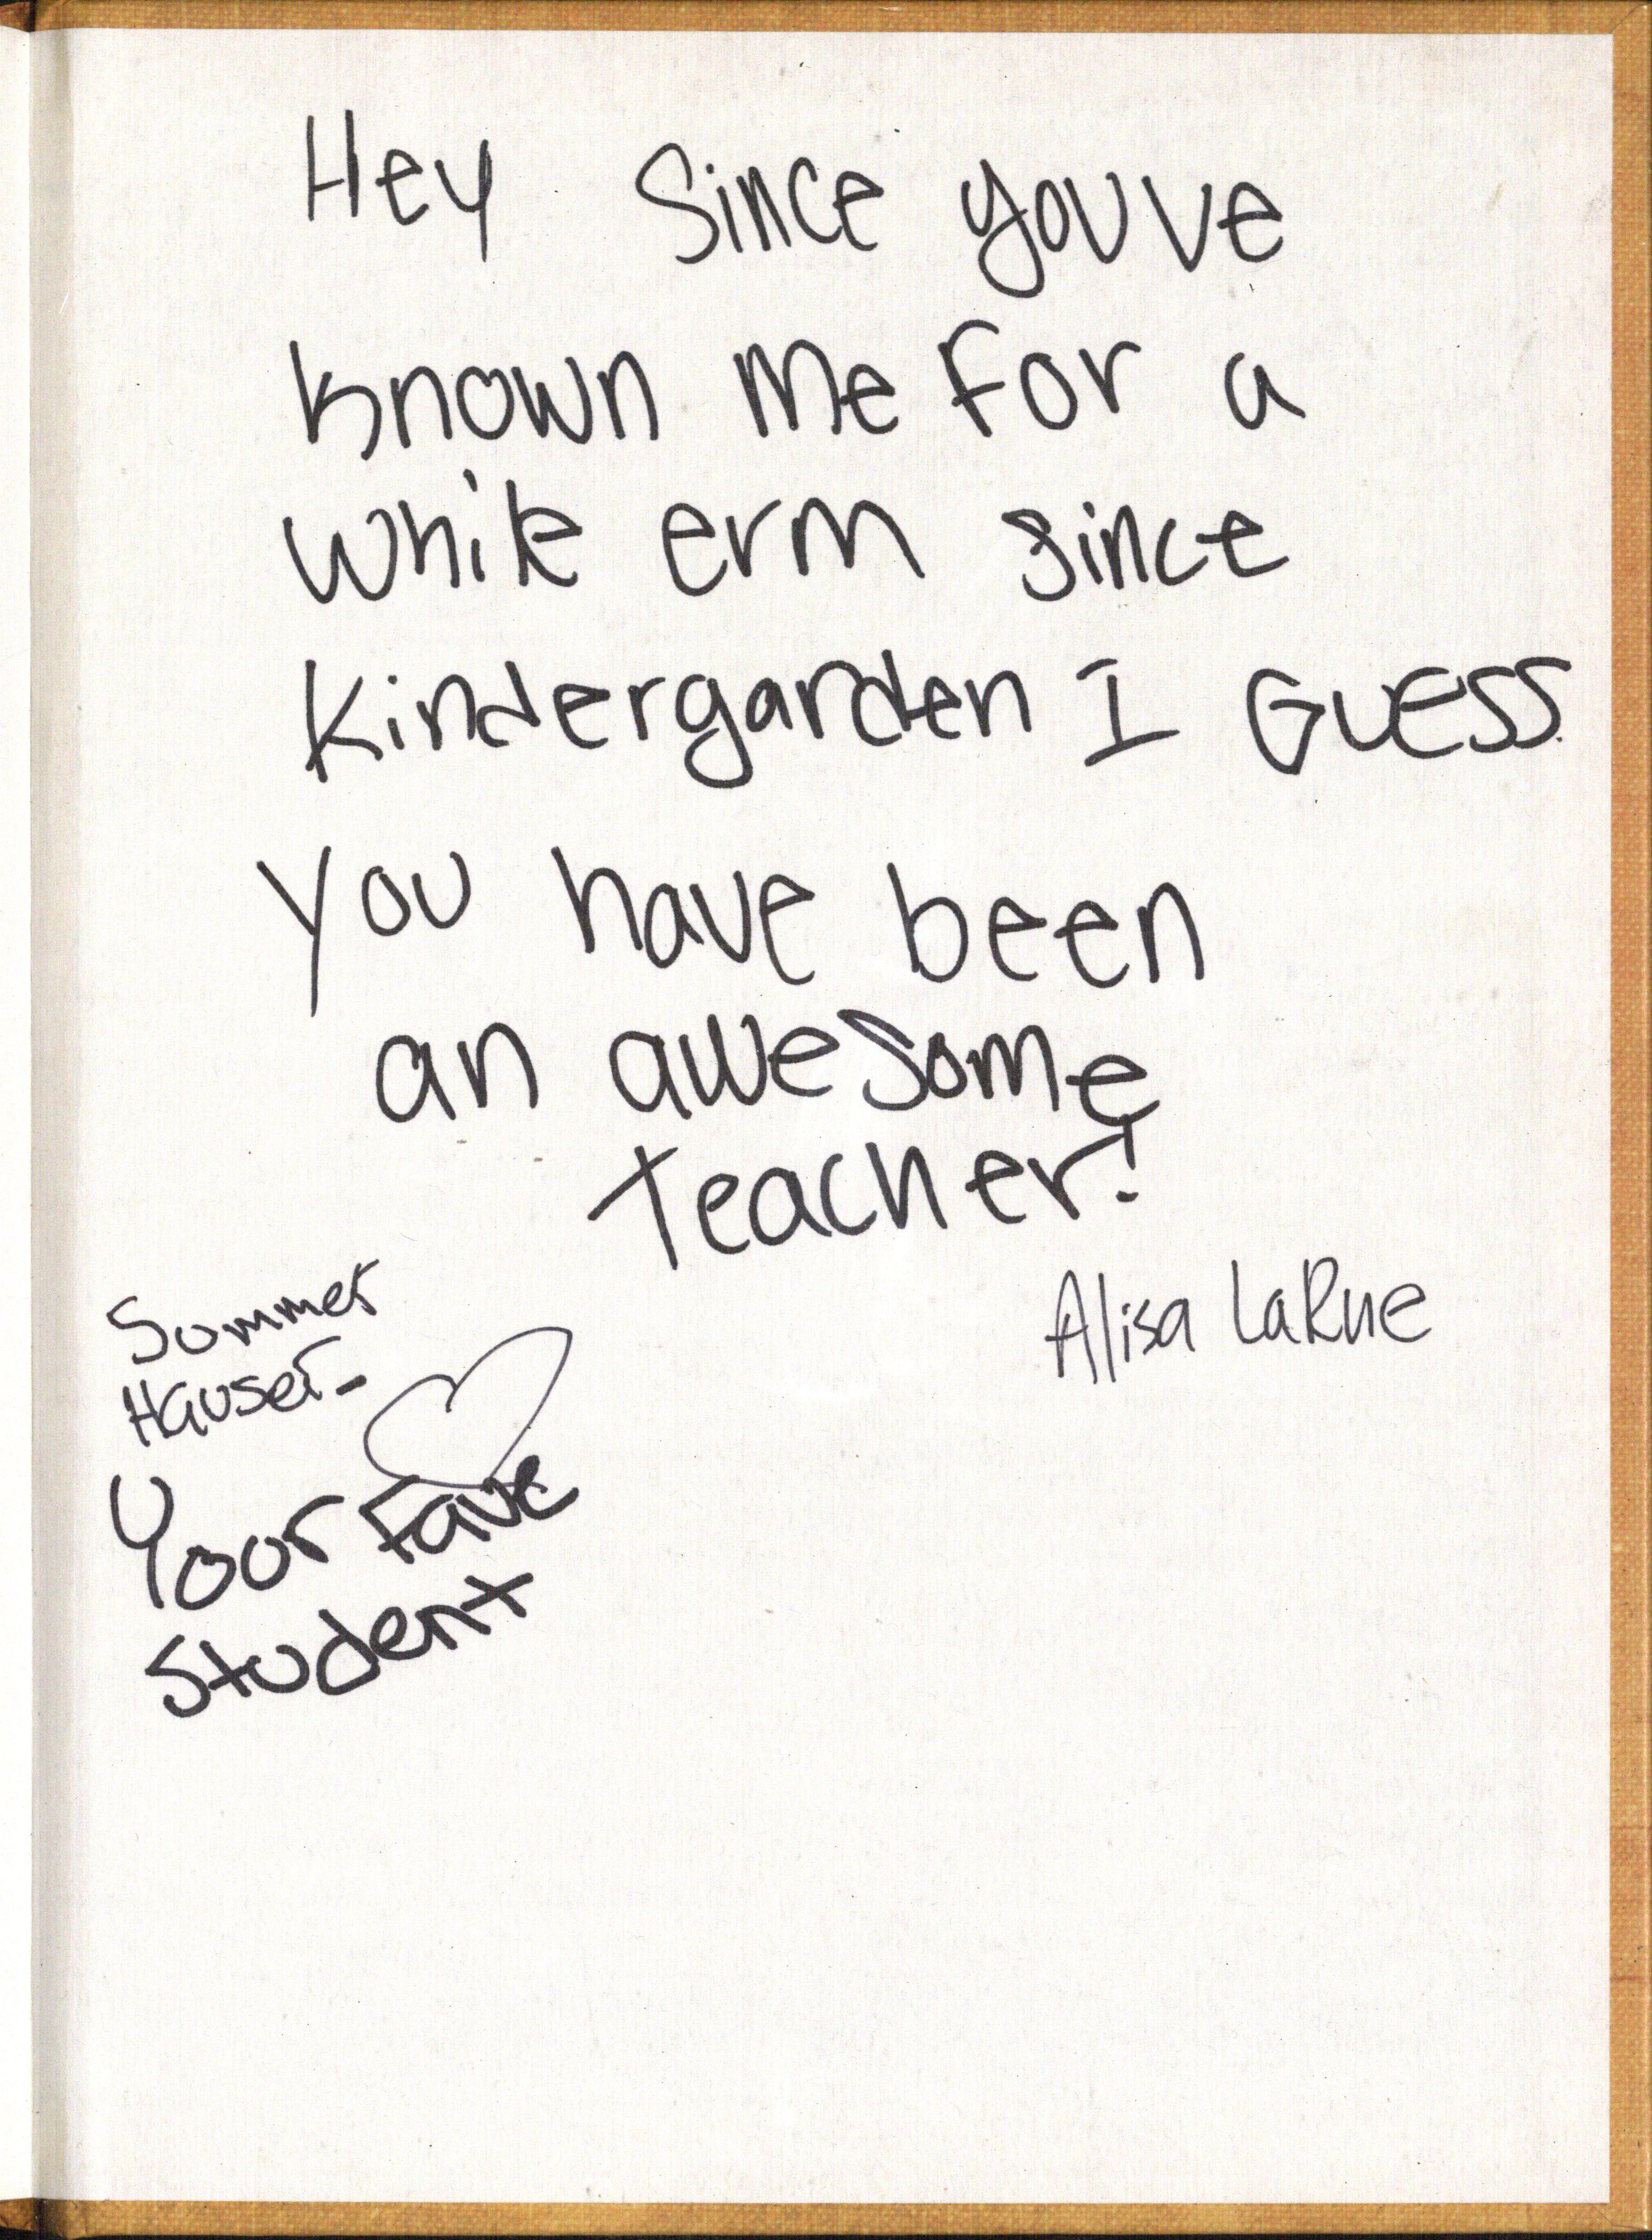 Hey Since youve
known me for a
while erm since
Kindergarden I GUESS
You have been
an awesome
teacher!
Alisa LaRue
Summer
Hauser-
Your Fave
Student